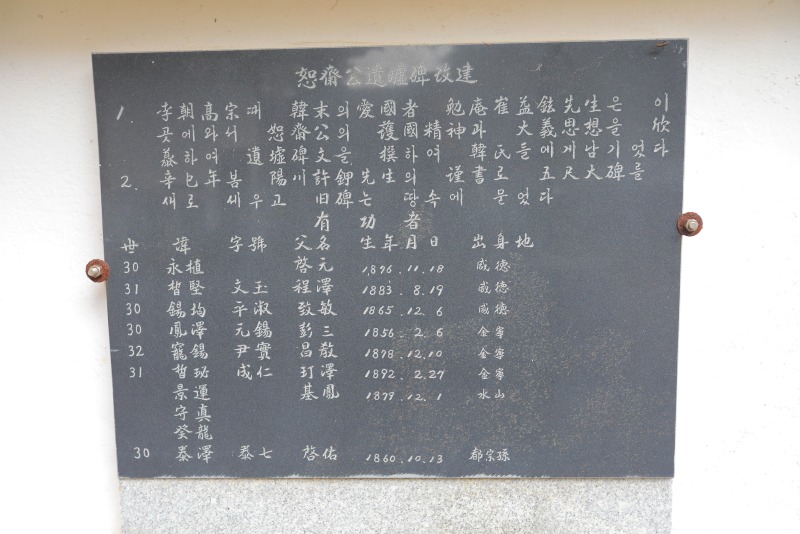 恕齋公遺墟碑改建
1. 孝朝高宗때 韓末의 愛國者 勉庵 崔益鉉先生은 이
곳에 와서 恕齋公의 護國精神과 大義思想을 欣
慕하여 遺墟碑文을 撰하여 韓氏들에게 남기었다
2. 辛巳年 봄 陽川許鉀先生의 謹書로 五尺大碑를
새로 세우고 旧碑는 땅속에 묻었다
有功者
世 諱 字號 父名 生年月日 出身地
30 永植 啓元 1896.11.18 咸德
31 晳堅 文玉 程澤 1883.8.19 咸德
30 錫均 平淑 致敏 1865.12.6 咸德
30 鳳澤 元錫 彭三 1856.2.6 金寧
32 寵錫 尹實 昌敎 1898.12.10 金寧
31 晳珌 成仁 玎澤 1892.2.27 金寧
景運 基鳳 1879.12.1 水山
守真
癸龍
30 泰澤 泰七 啓佑 1860.10.13 都宗孫